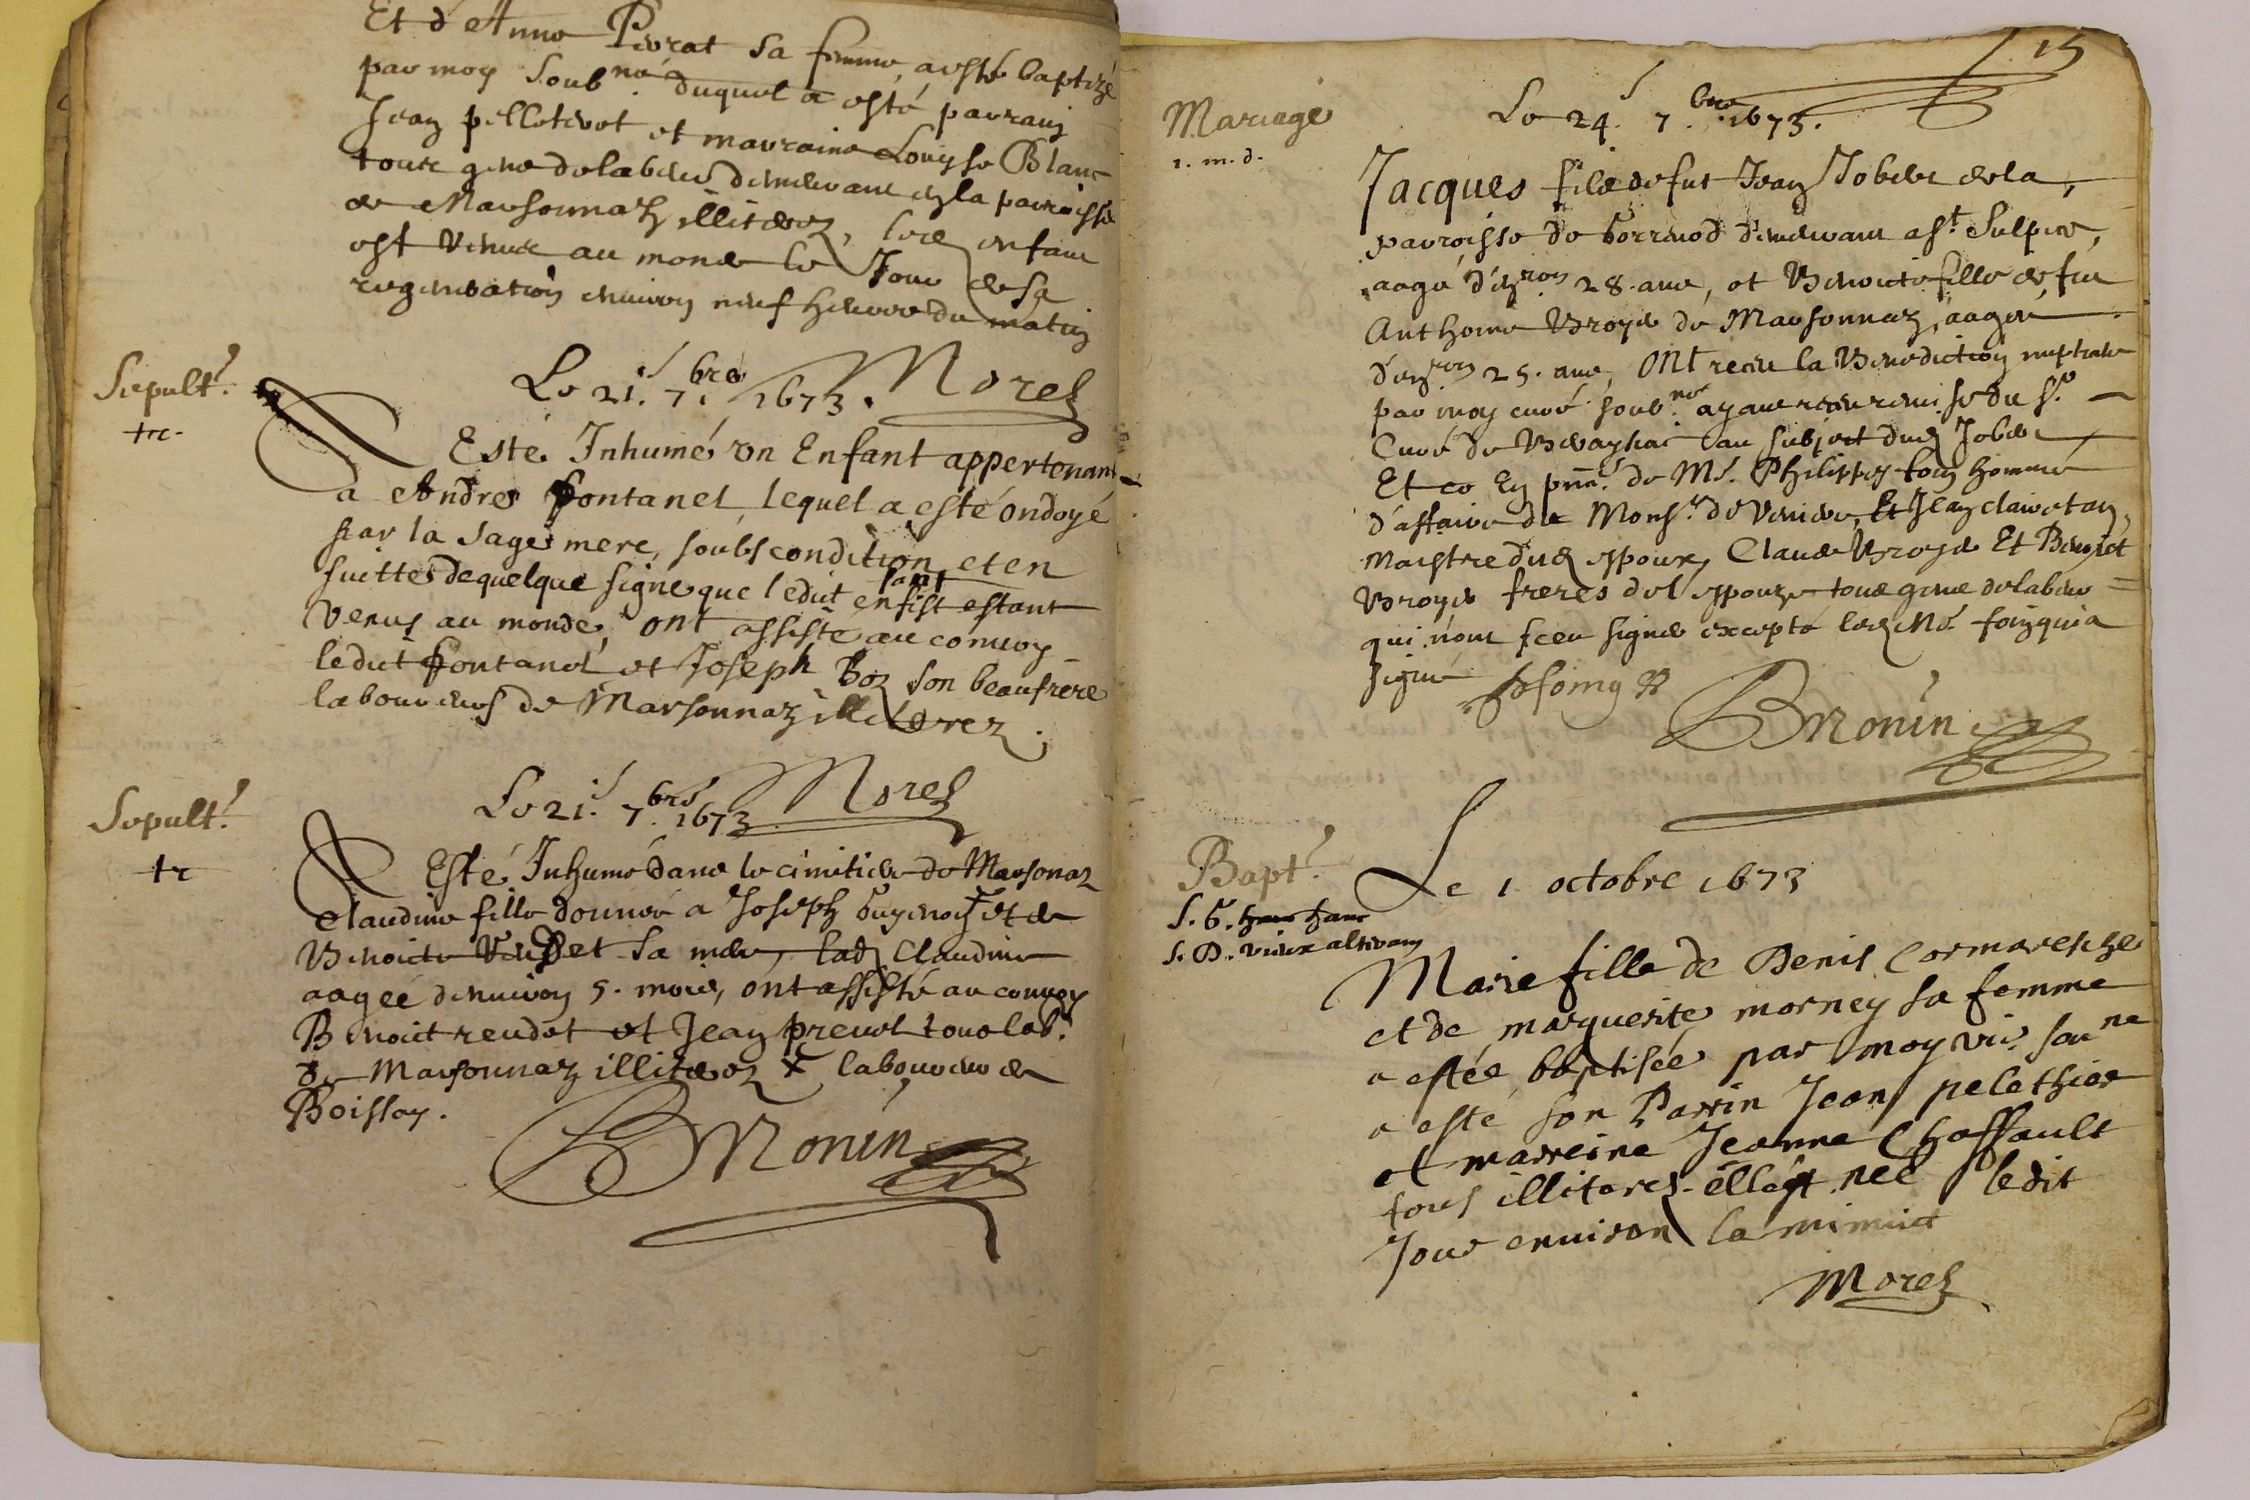 Et d'Anne Peurat sa femme, a esté baptizé
par moy soub.né duquel a esté parrain
Jean pelletivet et marraine Louyse Blanc
tous gens de labeur demeurant en la parroisse
de Marsonnaz illiterez, led enfant
est venue au monde le Jour de sa
regeneration environ neuf heures du matin
Morel
Sepult.
+rc.
Le 21. 7.bre 1673.
A Esté Inhumé un Enfant appertenant
a Andre fontanel lequel a esté ondoyé
par la sage mere, soubs condition et en
suittes de quelque signe que ledit enfant
fist estant
venus au monde, ont assisté au convoy
ledict fontanel et Joseph Boz son beaufrere
laboureurs de Marsonnaz illiterez.
Morel
Sepult.
+r
Le 21. 7.bre 1673
A Esté Inhumé dans le cimitiere de Marsonaz
Claudine fille donnée a Joseph et de
Benoicte sa mere, lad Claudine
aagée d'environ 5. mois, ont assisté au convoy
Benoict rendet et Jean prevel tous lab.
de Marsonnaz illiterez x laboureur de
Boissey.
BMonin
15
Mariage
1. m. d.
Le 24. 7.bre 1673.
Jacques fils de fut Jean Jober de la
parroisse de demeurant a s.t Sulpice,
aagé d'en.ron 28. ans, et Benoicte fille de fut
Anthoine Broyer de Marsonnaz, aagée
d'en.ron 25. ans, ont receu la Benediction nuptiale
par moy curé soub.né ayant receu remise du s.r
Curé de au subject dud Jober
Et ce En pñce de M.e Philippes foin homme
d'affaire de Mons.r de Et Jean clairetan,
maistre dud espoux, Claude Broyer Et Benoict
Broyer freres de l'espouze tous gens de labeur
qui n'ont sceu signer excepté led M.e foin qui a
signé
foing
BMonin
Bapt.
s. G.
s. D. vieux
Le 1 octobre 1673
Marie fille de Denis Cormaresche
et de marguerite morney sa femme
a estée baptisée par moy vic. sou.ne
a esté son Parrin Jean pelethier
et marreine Jeanne Chaffault
tous illiterez. elle est née ledit
Jour environ la minuict
Morel